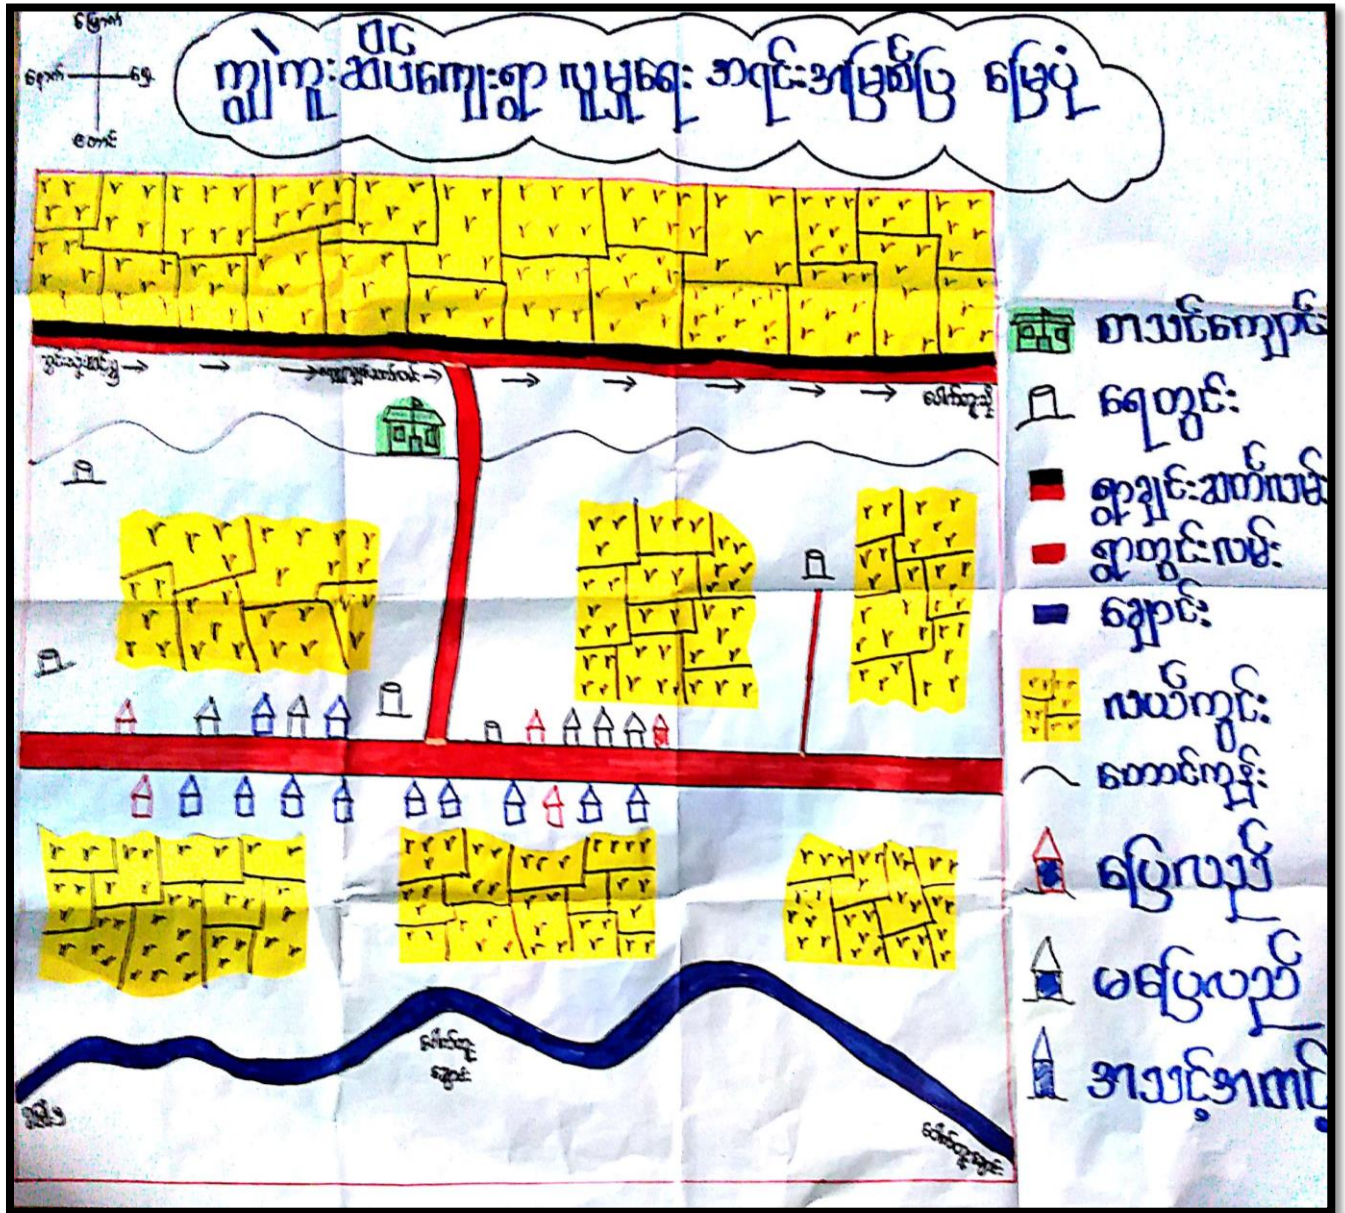 မြောက်
အနောက်
အရှေ့
တောင်
ကျွဲကူးဆိပ်ကျေးရွာ လူမှုရေး အရင်းအမြစ်ပြ မြေပုံ
ပိုင်
စာသင်ကျောင်း
ရေတွင်း
ရွာချင်းဆက်လမ်း
ရွာတွင်းလမ်း
ချောင်း
လယ်ကွင်း
တောင်ကုန်း
ပြေလည်
မပြေလည်
အသင့်အတင့်